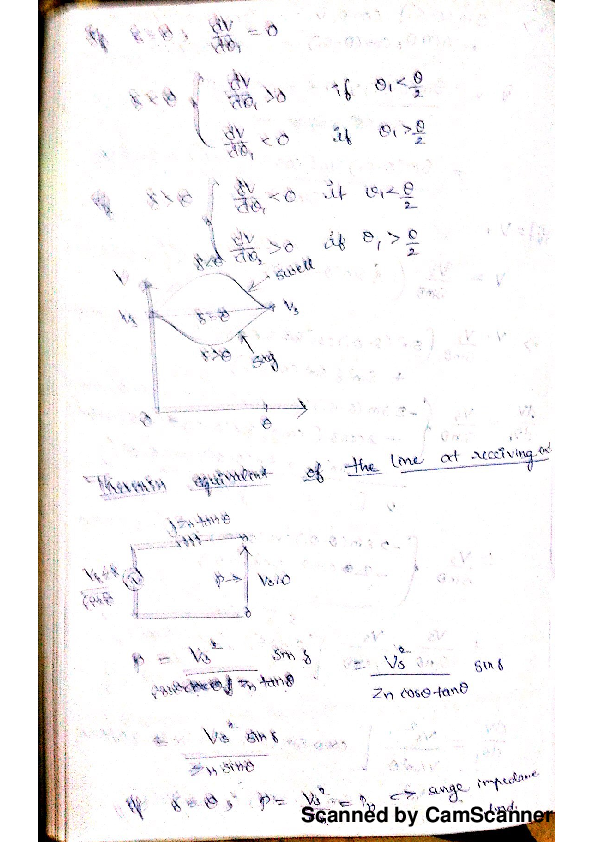 If δ = θ, dV/dθ₁ = 0
δ < θ { dV/dθ₁ > 0 if θ₁ < θ/2
dV/dθ₁ < 0 if θ₁ > θ/2
If δ > θ { dV/dθ₁ < 0 if θ₁ < θ/2
dV/dθ₁ > 0 if θ₁ > θ/2
δ < θ
swell
V
Vs
δ = θ
Vs
δ > θ
sag
0
θ
Thevenin equivalent of the line at receiving end
jZn tanθ
Vs∠δ/cosθ
P→
Vs∠0
P = Vs²/ Zn tanθ sin δ = Vs²/Zn cosθ tanθ sin δ
= Vs² sin δ/Zn sinθ
If δ = θ, P = Vs²/ = → surge impedance
Scanned by CamScanner